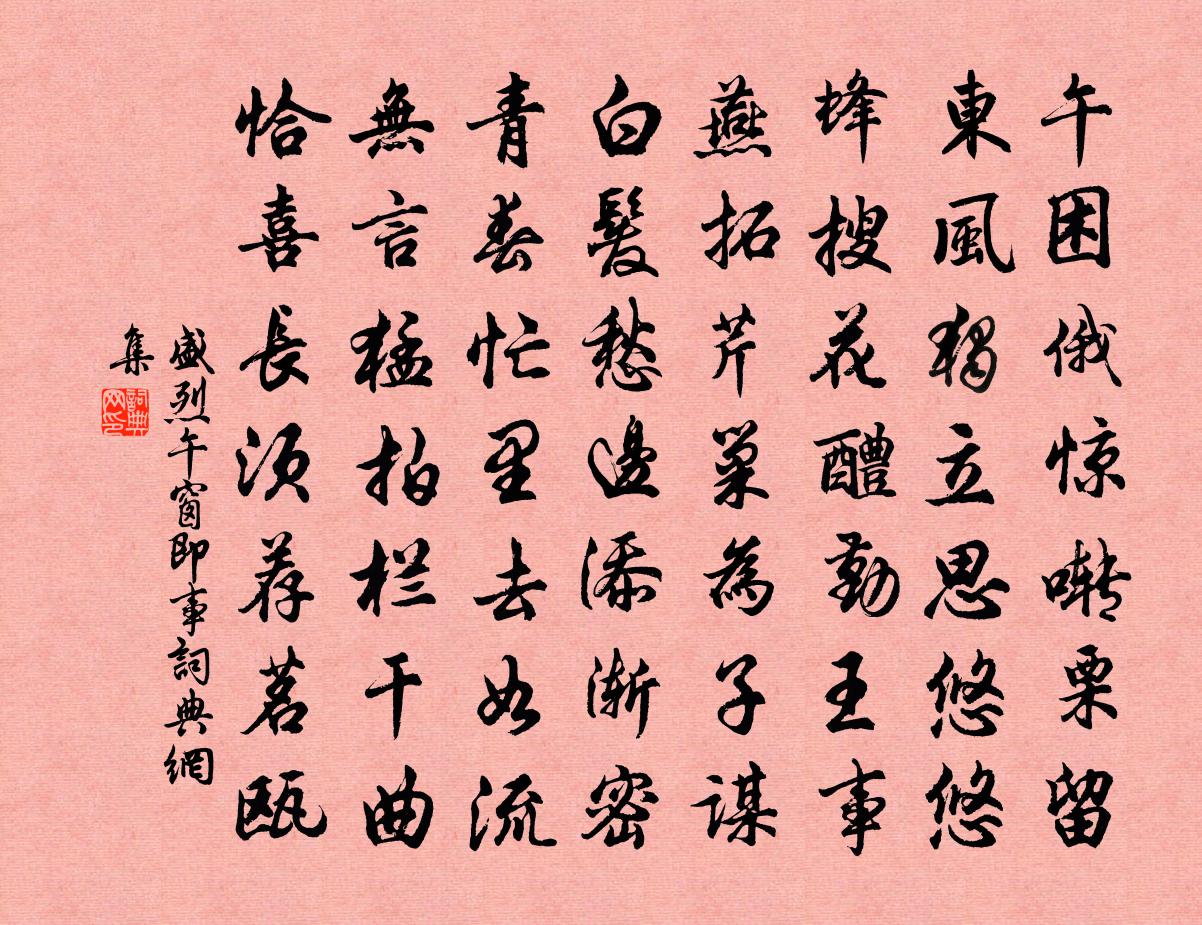 午困俄惊啭栗留
東風独立思悠悠
蜂搜花醴勤王事
燕拓芹巢為子謀
白髮愁邊添渐密
青春忙里去如流
無言猛拍栏干曲
恰喜長须荐茗瓯
盛烈午窗即事詞典網
集
詞典网印